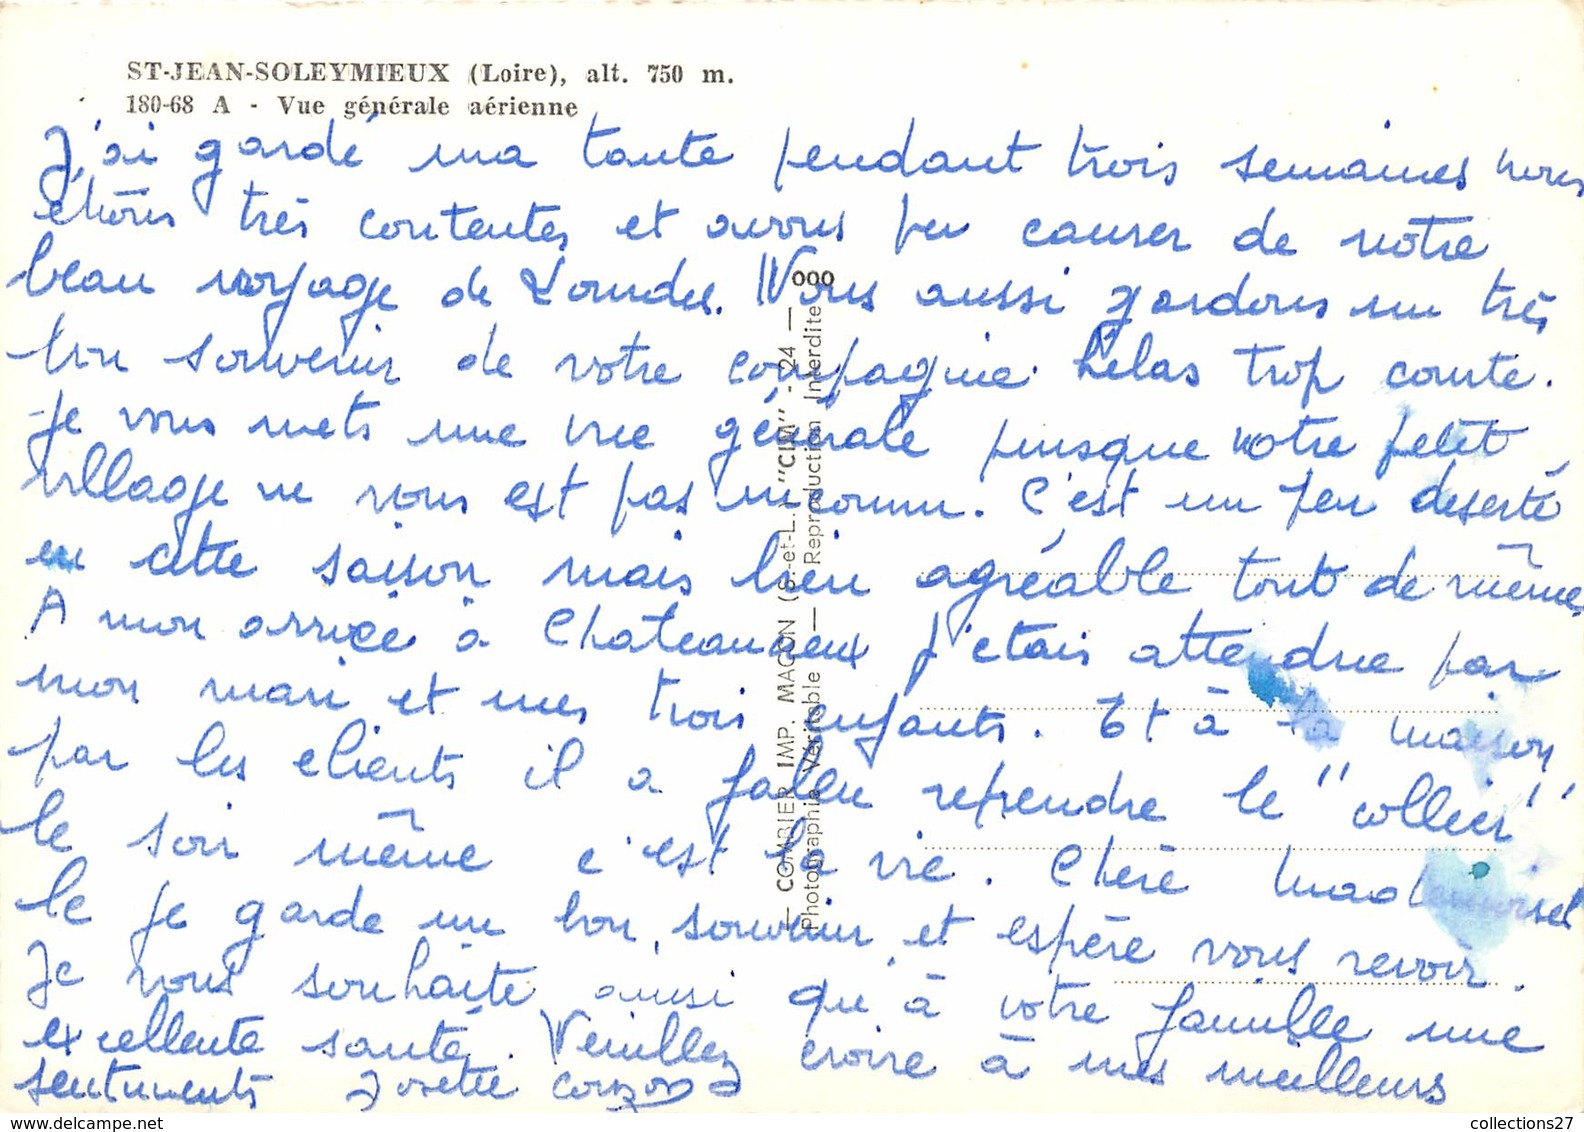 ST-JEAN-SOLEYMIEUX (Loire), alt. 750 m.
180-68 A - Vue générale aérienne
J'ai gardé ma tante pendant trois semaines nous
étions très contentes et avons pu causer de notre
beau voyage de Lourdes. Nous aussi gardons un très
bon souvenir de votre compagnie hélas trop courte.
Je vous mets une vue générale puisque notre petit
village ne vous est pas inconnu. C'est un peu déserté
en cette saison mais bien agréable tout de même,
A mon arrivée à Chateauneux j'étais attendue par
mon mari et mes trois enfants. Et à la maison
par les clients il a fallu reprendre le "collier"
le soir même c'est la vie. Chère Mademoisel
le je garde un bon souvenir et espère vous revoir.
Je vous souhaite ainsi qu'à votre famille une
excellente santé. Veuillez croire à mes meilleurs
sentiments Josette
— COMBIER IMP. MACON (S.-et-L.) "CIM" - 24 — ooo
Photographie Véritable — Reproduction Interdite
collections27